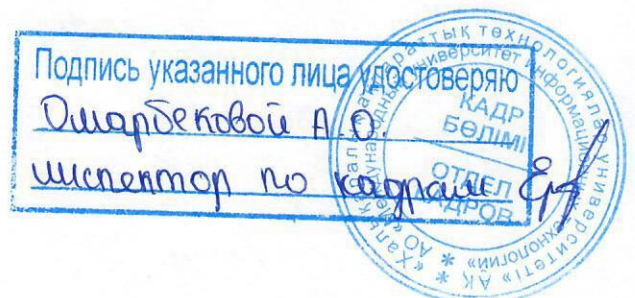 Подпись указанного лица удостоверяю
Омарбековой А.О.
инспектор по кадрам
КАДР
БӨЛІМІ
ОТДЕЛ
КАДРОВ
«Халықаралық ақпараттық технологиялар университеті» АҚ
АО «Международный университет информационных технологий»